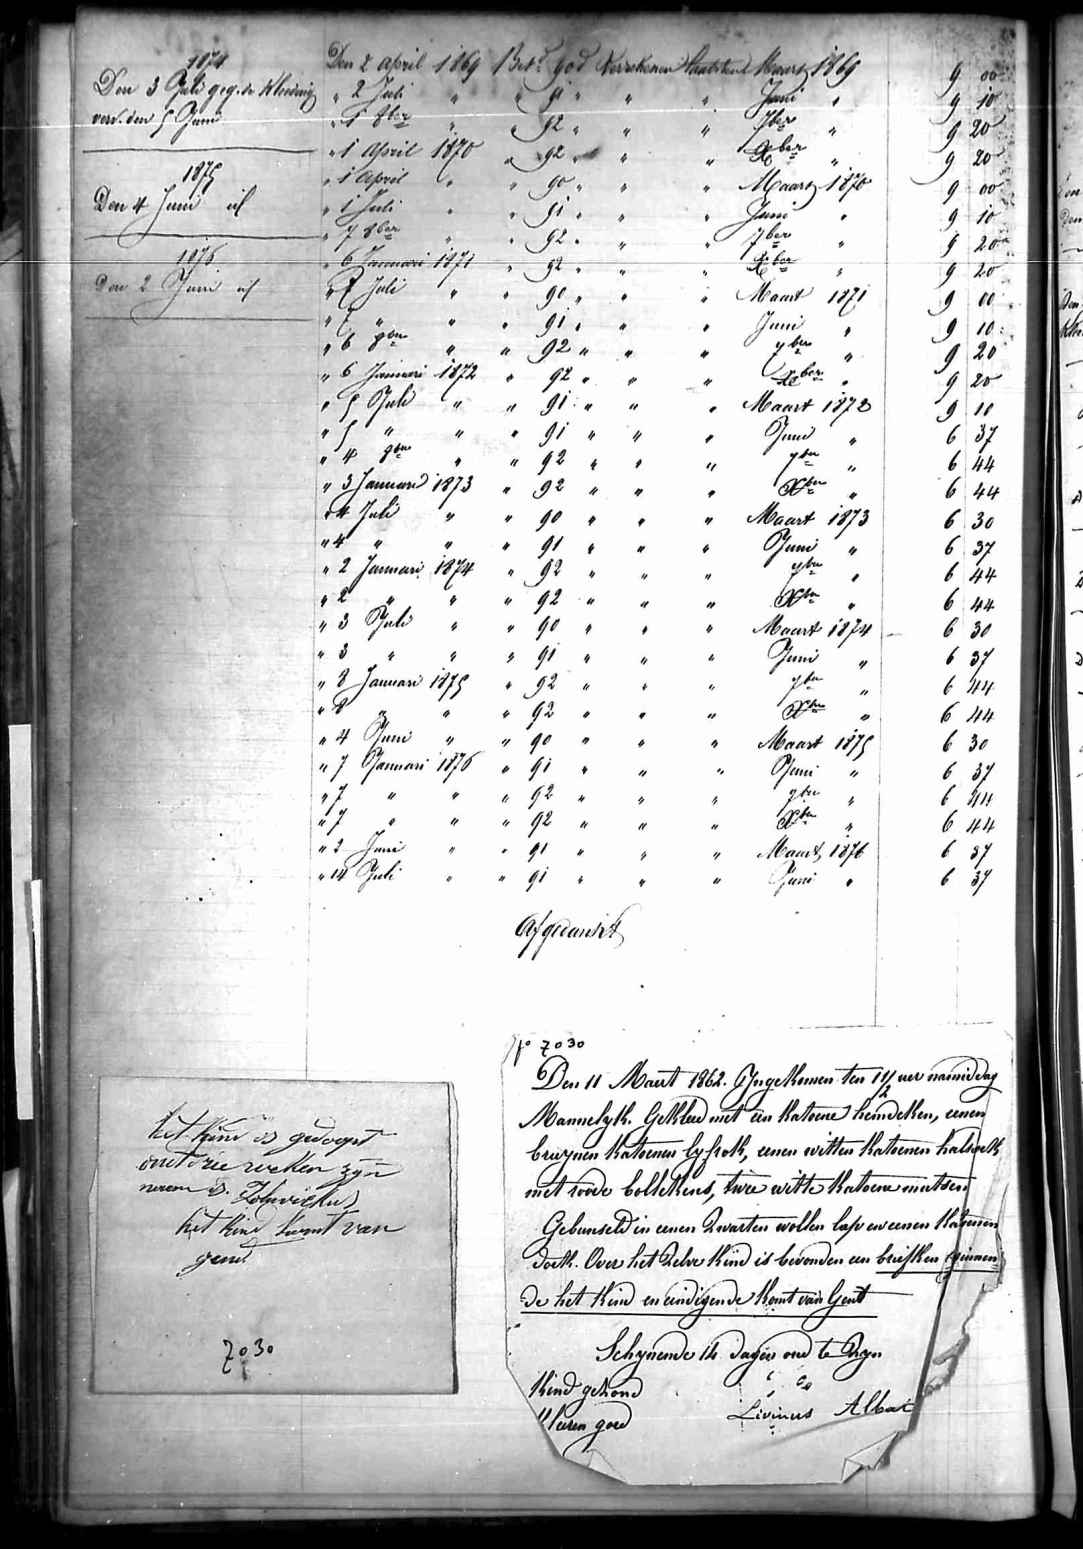 1874
Den 3 Juli geg. de Kleeding
verv. den 5 Juni
1875
Den 4 Juni id
1876
Den 2 Juni id
Den 2 April 1869 Bet. 90 d Maart 1869 9 00
" 2 Juli " " 91 " " " Juni " 9 10
" 1 8ber " " 92 " " " 7ber " 9 20
" 1 April 1870 " 92 " " " Xber 9 20
" 1 April " " 90 " " " Maart 1870 9 00
" 1 Juli " " 91 " " " Juni " 9 10
" 7 8ber " " 92 " " " 7ber " 9 20
" 6 Januari 1871 " 92 " " " Xber " 9 20
" 7 Juli " " 90 " " " Maart 1871 9 00
" 7 " " " 91 " " " Juni " 9 10
" 6 8ber " " 92 " " " 7ber " 9 20
" 6 Januari 1872 " 92 " " " Xber " 9 20
" 5 Juli " " 91 " " " Maart 1872 9 10
" 5 " " " 91 " " " Juni " 6 37
" 4 8ber " " 92 " " " 7ber " 6 44
" 3 Januari 1873 " 92 " " " Xber " 6 44
" 4 Juli " " 90 " " " Maart 1873 6 30
" 4 " " " 91 " " " Juni " 6 37
" 2 Januari 1874 " 92 " " " 7ber " 6 44
" 2 " " " 92 " " " Xber " 6 44
" 3 Juli " " 90 " " " Maart 1874 6 30
" 3 " " " 91 " " " Juni " 6 37
" 8 Januari 1875 " 92 " " " 7ber " 6 44
" 8 " " " 92 " " " Xber " 6 44
" 4 Juni " " 90 " " " Maart 1875 6 30
" 7 Januari 1876 " 91 " " " Juni " 6 37
" 7 " " " 92 " " " 7ber " 6 44
" 7 " " " 92 " " " Xber " 6 44
" 2 Juni " " 91 " " " Maart 1876 6 37
" 14 Juli " " 91 " " " Juni " 6 37
Afgedankt
het kind is gedoopt
out drie weken zyn
naem is
het kind komt van
gent
7030
No 7030
Den 11 Maart 1862. Ingekomen ten 11 1/2 uer namiddag
Mannelyk. Gekleed met een katoene hemdeken, eenen
bruynen katoenen lyfrok, eenen witten katoenen halsdoek
met roode bollekens, twee witte katoene mutsen
Gebunseld in eenen zwarten wollen lap en eenen katoenen
doek. Over het zelve kind is bevonden een briefken beginnen-
de het kind en eindigende komt van Gent
Schynende 14 dagen oud te zyn
Kind gezond
Kleeren goed Livinus Albat